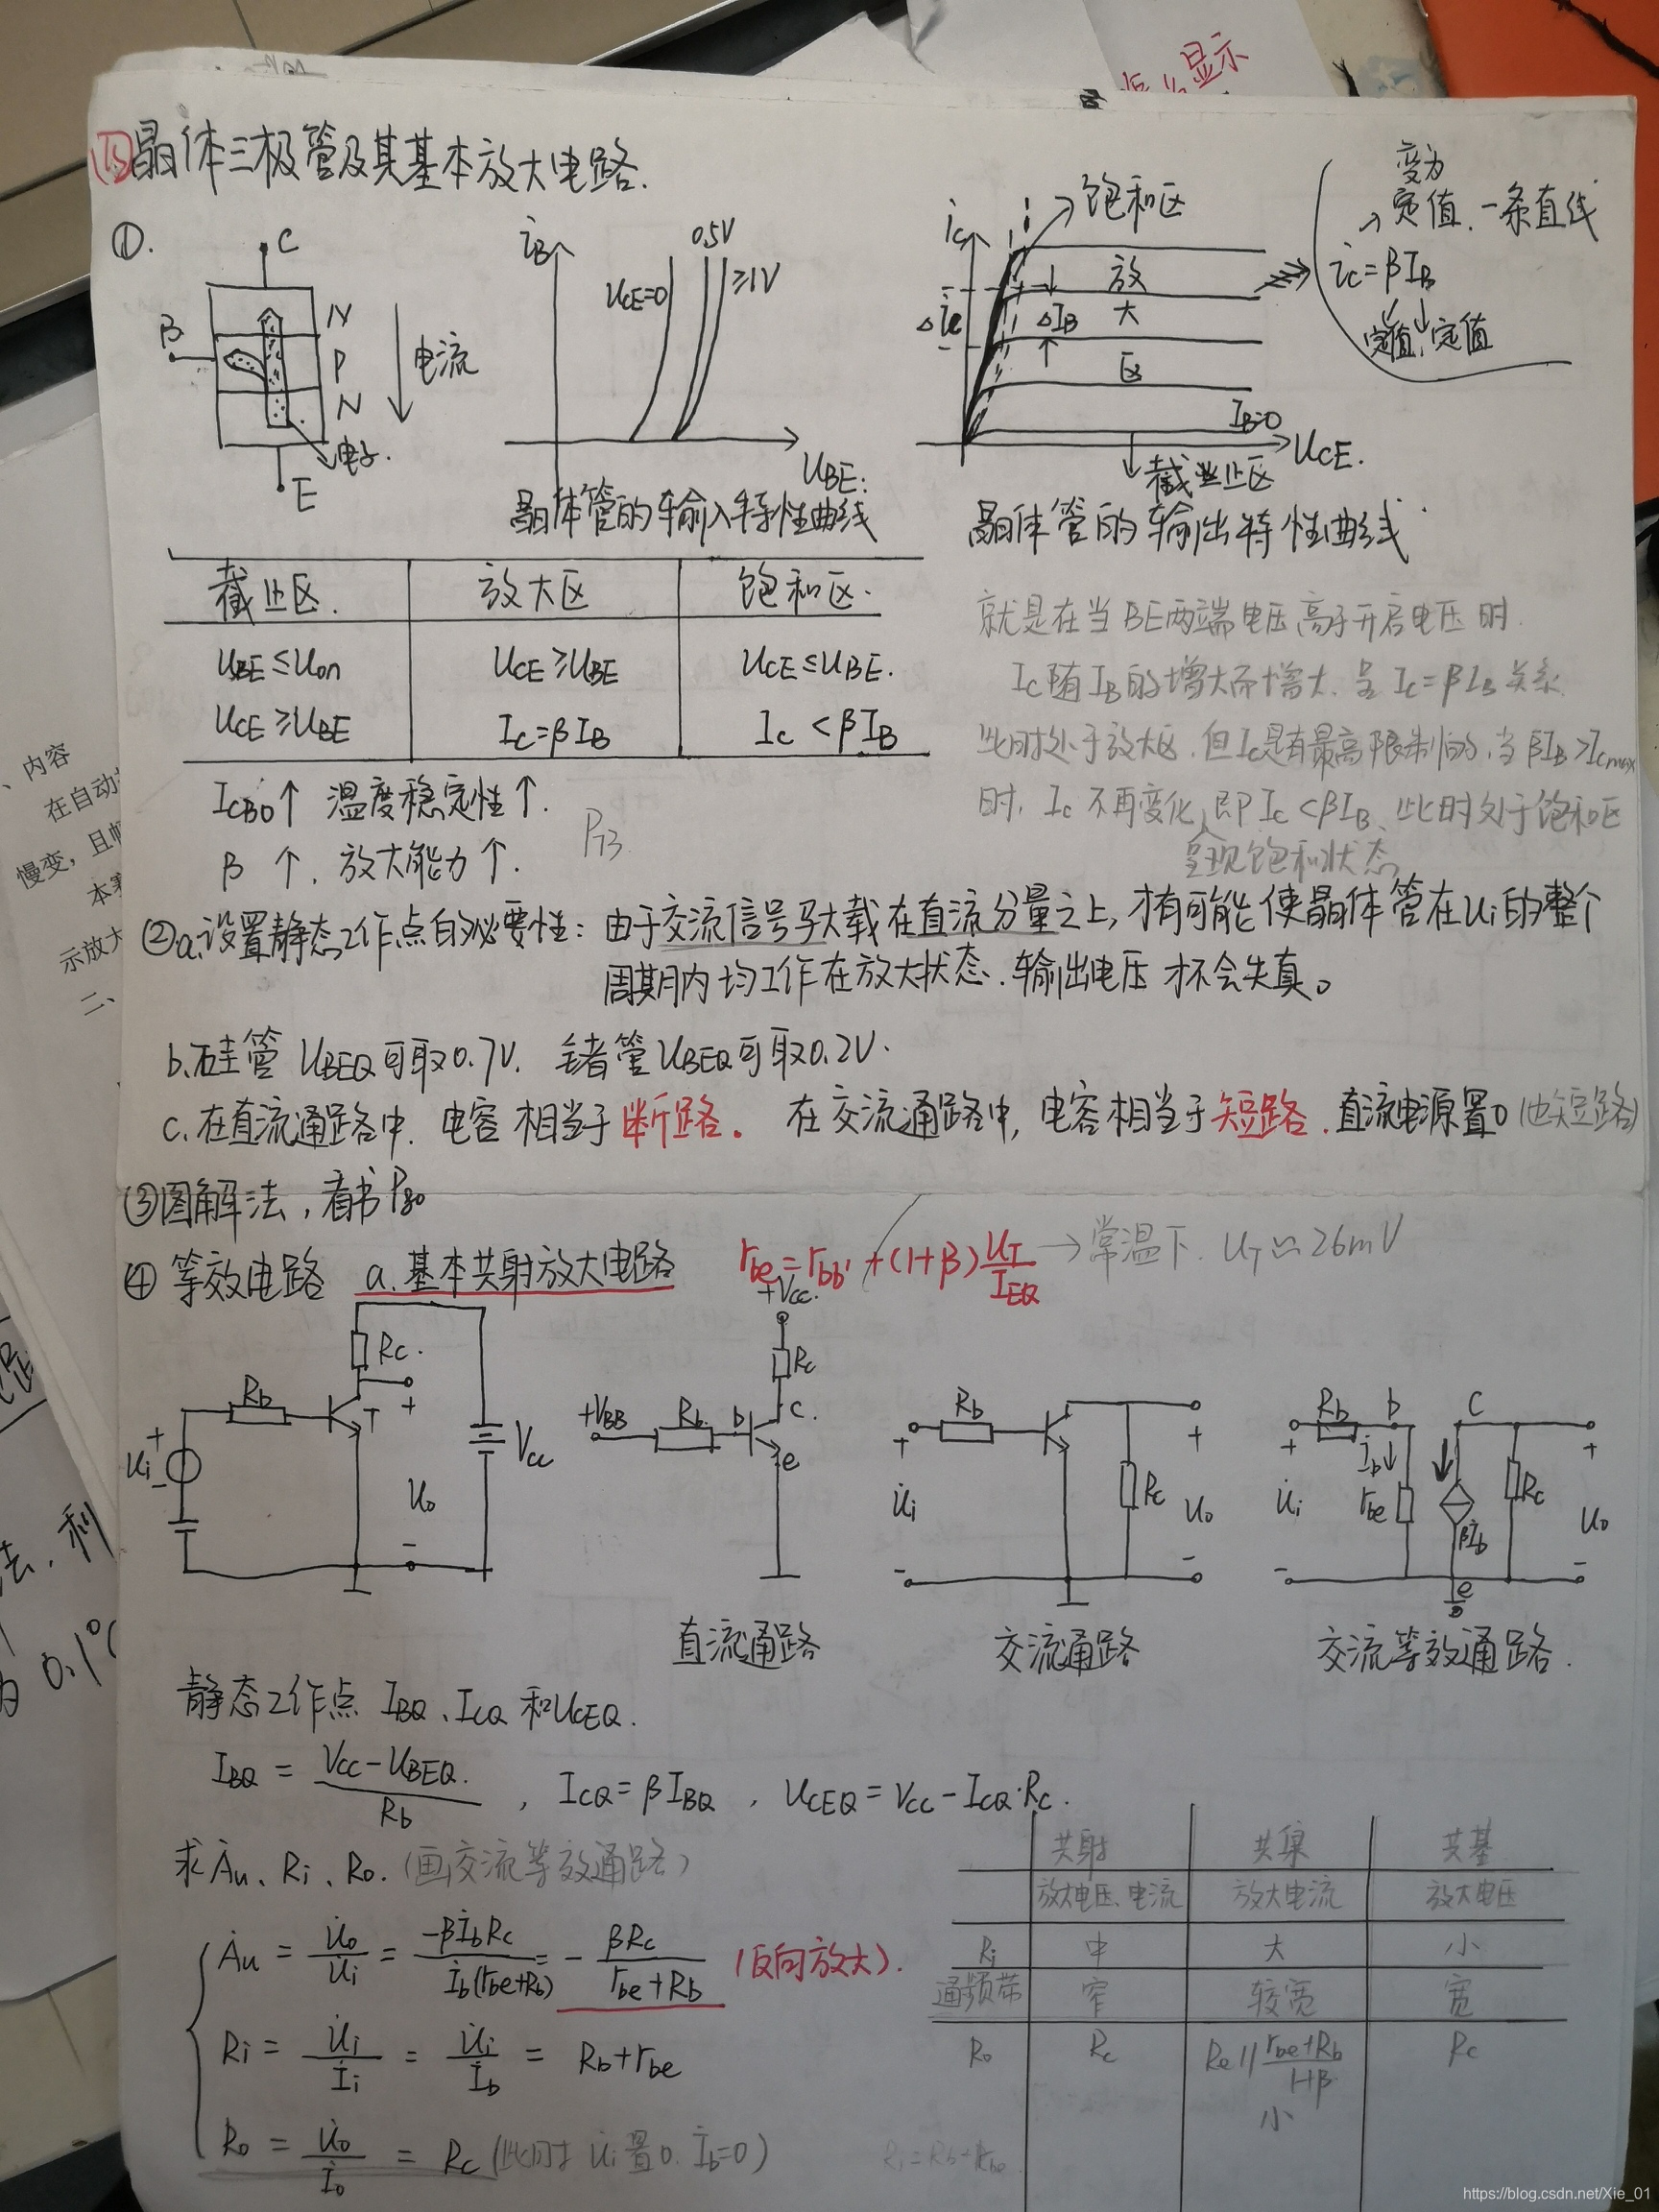 显示
(五)晶体三极管及其基本放大电路.
①.
C
B
N
P
N
E
电流
电子.
iB
UCE=0
0.5V
≥1V
UBE:
晶体管的输入特性曲线
iC
饱和区
放
大
区
ΔiC
ΔIB
IB=0
UCE.
截止区
晶体管的输出特性曲线
变为
定值.一条直线
iC=βIB
定值 定值
截止区. 放大区 饱和区.
UBE≤Uon UCE≥UBE UCE≤UBE.
UCE≥UBE IC=βIB IC<βIB
ICBO↑ 温度稳定性↑.
β ↑. 放大能力↑.
P73
就是在当BE两端电压高于开启电压时.
IC随IB的增大而增大.呈IC=βIB关系.
此时处于放大区.但IC是有最高限制的.当βIB>ICmax
时,IC不再变化,即IC<βIB.此时处于饱和区
呈现饱和状态
②a.设置静态工作点的必要性:由于交流信号驮载在直流分量之上,才有可能使晶体管在Ui的整个
周期内均工作在放大状态.输出电压才不会失真。
b.硅管UBEQ可取0.7V. 锗管UBEQ可取0.2V.
c.在直流通路中.电容相当于断路。 在交流通路中,电容相当于短路.直流电源置0(也短路)
③图解法,看书P80
④等效电路 a.基本共射放大电路 rbe=rbb'+(1+β)UT/IEQ →常温下.UT≈26mV
Rb
Rc.
T
+
-
Ui
Uo
Vcc
+VBB
Rb
b
+Vcc.
Rc
c.
e
直流通路
Rb
+
-
U̇i
Rc
U̇o
交流通路
Rb
b
c
İb↓
rbe
βİb
e
Rc
U̇i
U̇o
交流等效通路.
静态工作点 IBQ、ICQ和UCEQ.
IBQ=(VCC-UBEQ.)/Rb , ICQ=βIBQ , UCEQ=VCC-ICQ·Rc.
求Ȧu、Ri、Ro.(画交流等效通路)
Ȧu=U̇o/U̇i=-βİbRc/İb(rbe+Rb)=-βRc/(rbe+Rb) (反向放大).
Ri=U̇i/İi=U̇i/İb=Rb+rbe
Ro=U̇o/İo=Rc(此时U̇i置0.İb=0)
共射 共集 共基
放大电压、电流 放大电流 放大电压
Ri 中 大 小
通频带 窄 较宽 宽
Ro Rc Re//(rbe+Rb)/(1+β) Rc
小
Ri=Rb+rbe
、内容
在自动
慢变,且
示放大
二、
法,利
0.1℃
https://blog.csdn.net/Xie_01